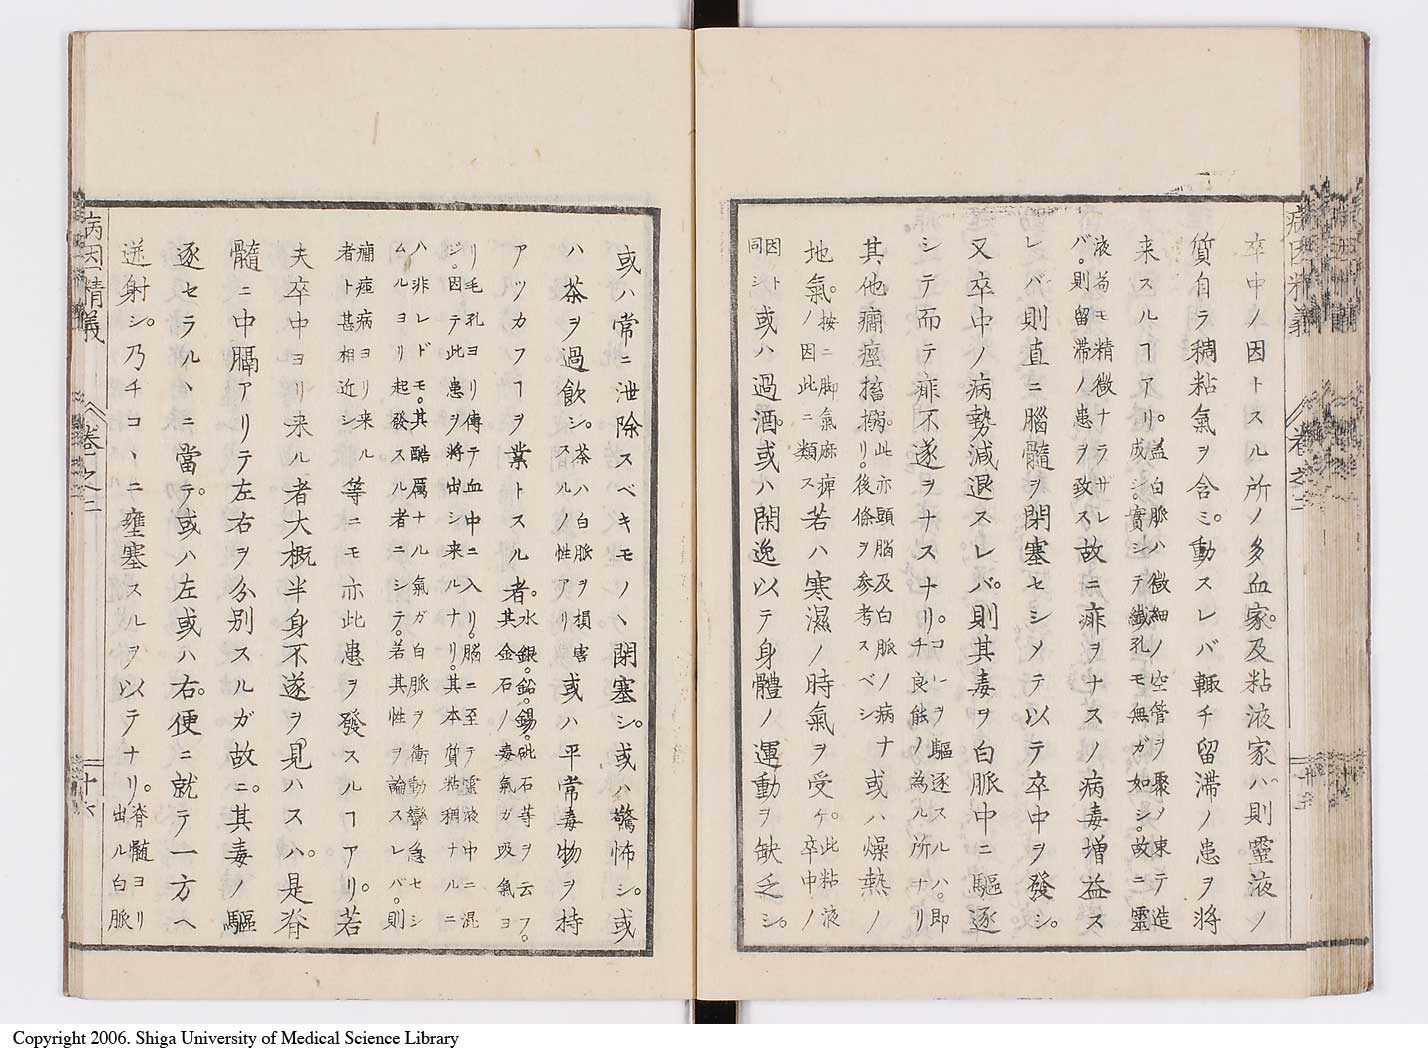 病因精義
卷之二
卒中ノ因トスル所ノ多血家。及粘液家ハ則靈液ノ
質自ラ稠粘氣ヲ含ミ。動スレバ輙チ留滞ノ患ヲ將
来スルヿアリ。蓋白脈ハ微細ノ空管ヲ聚ノ束テ造
成シ。實シテ纎孔モ無ガ如シ。故ニ靈
液苟モ精微ナラザレ
バ。則留滞ノ患ヲ致ス故ニ痱ヲナスノ病毒増益ス
レバ則直ニ腦髓ヲ閉塞セシメテ以テ卒中ヲ發シ。
又卒中ノ病勢減退スレバ。則其毒ヲ白脈中ニ驅逐
シテ而テ痱不遂ヲナスナリ。コレヲ驅逐スルハ。即
チ良能ノ為ル所ナリ
其他癇痙搐搦。此亦頭腦及白脈ノ病ナ
リ。後條ヲ参考スベシ
或ハ燥熱ノ
地氣。按ニ脚氣麻痺
ノ因此ニ類ス
若ハ寒濕ノ時氣ヲ受ケ。此粘液
卒中ノ
因ト
同シ
或ハ過酒。或ハ閑逸以テ身體ノ運動ヲ缺乏シ。
或ハ常ニ泄除スベキモノヽ閉塞シ。或ハ驚怖シ。或
ハ茶ヲ過飲シ。茶ハ白脈ヲ損害
スルノ性アリ
或ハ平常毒物ヲ持
アツカフヿヲ業トスル者。水銀。鉛。錫。砒石等ヲ云フ。
其金石ノ毒氣ガ吸氣ヨ
リ毛孔ヨリ傳テ血中ニ入リ。腦ニ至テ靈液中ニ混
ジ。因テ此患ヲ將出シ来ルナリ。其本質粘稠ナルニ
ハ非レドモ。其酷厲ナル氣ガ白脈ヲ衝動攣急セシ
ムルヨリ起發スル者ニシテ。若其性ヲ論スレバ。則
癇痙病ヨリ来ル
者ト甚相近シ
等ニモ亦此患ヲ發スルヿアリ。若
夫卒中ヨリ来ル者大概半身不遂ヲ見ハスハ。是脊
髓ニ中膈アリテ左右ヲ分別スルガ故ニ。其毒ノ驅
逐セラルヽニ當テ。或ハ左或ハ右。便ニ就テ一方ヘ
迸射シ。乃チコヽニ壅塞スルヲ以テナリ。脊髓ヨリ
出ル白脈
病因精義
卷之二
十六